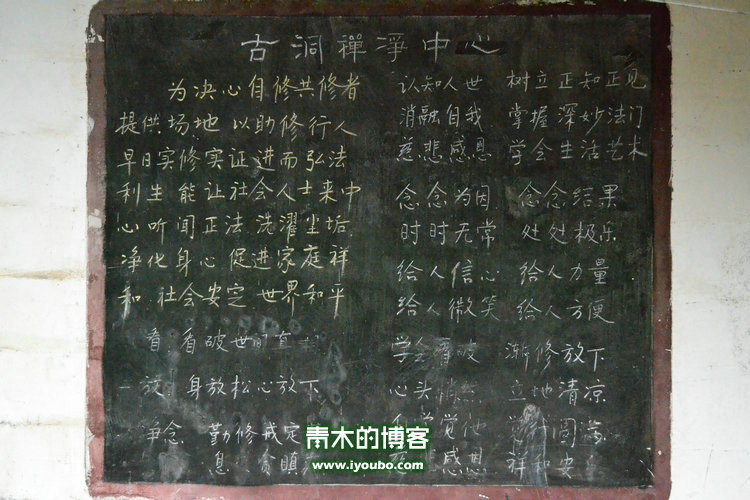 古洞禪淨中心
为决心自修共修者
提供场地以助修行人
早日实修实证进而弘法
利生能让社会人士来中
心听闻正法洗濯尘垢
净化身心促进家庭祥
和社会安定世界和平
看看破世间直
一放身放松心放下
净念勤修戒定
息贪瞋
认知人世 树立正知正见
消融自我 掌握深妙法门
慈悲感恩 学会生活艺术
念念为因 念念结果
时时无常 处处极乐
给人信心 给人力量
给人微笑 给人方便
学会看破 渐修放下
心头 立地清凉
觉他 圆
感恩 祥和安
青木的博客
www.iyoubo.com